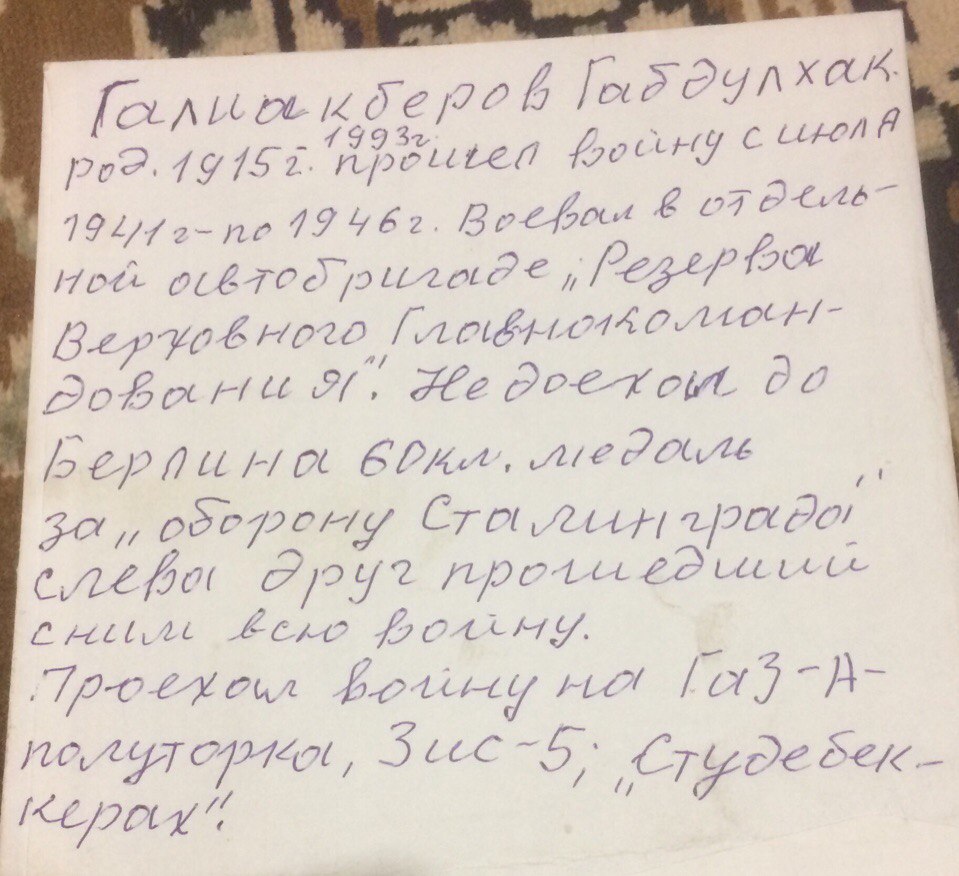 Галиакберов Габдулхак.
род. 1915г. 1993г. прошел войну с июлА
1941г-по 1946г. Воевал в отдель-
ной автобригаде „Резерва
Верховного Главнокоман-
дования". Не доехал до
Берлина 60кл. медаль
за „оборону Сталинграда"
слева друг прошедший
сним всю войну.
Проехал войну на ГаЗ-А-
полуторка, Зис-5; „Студебек-
керах".